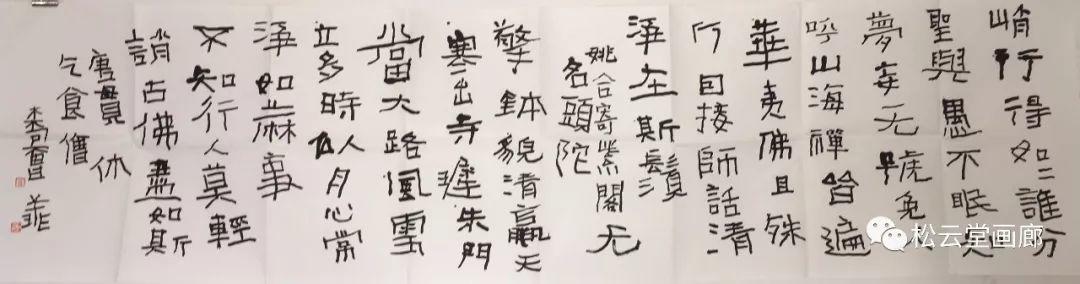 峭行得如二誰分
聖與愚不眠知
夢妄无號免人
呼山海禪皆遍
華夷佛且殊
何因接師話清
淨在斯須
姚合寄紫閣无
名頭陀
擎鉢貌清羸天
寒出寺遲朱門
當大路風雪
立多時似月心常
淨如麻事
不知行人莫輕
誚古佛盡如斯
唐貫休
乞食僧
松云堂画廊